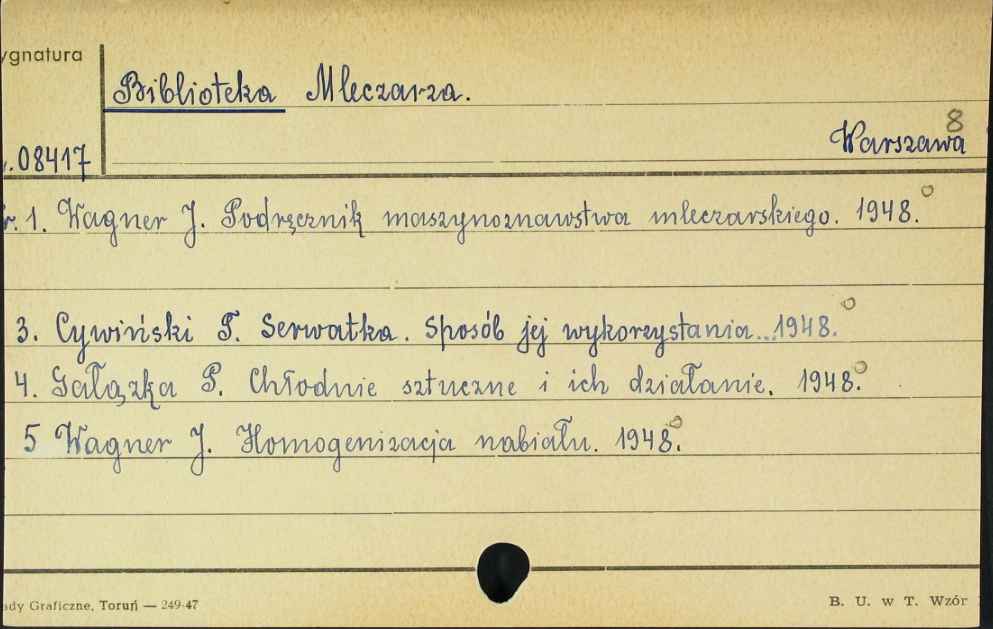 ygnatura
Biblioteka Mleczarza.
8
Warszawa
.08417
r. 1. Wagner J. Podręcznik maszynoznawstwa mleczarskiego. 1948.
3. Cywiński T. Serwatka. Sposób jej wykorzystania...1948.
4. Gałązka P. Chłodnie sztuczne i ich działanie. 1948.
5 Wagner J. Homogenizacja nabiału. 1948.
ady Graficzne, Toruń — 249-47
B. U. w T. Wzór